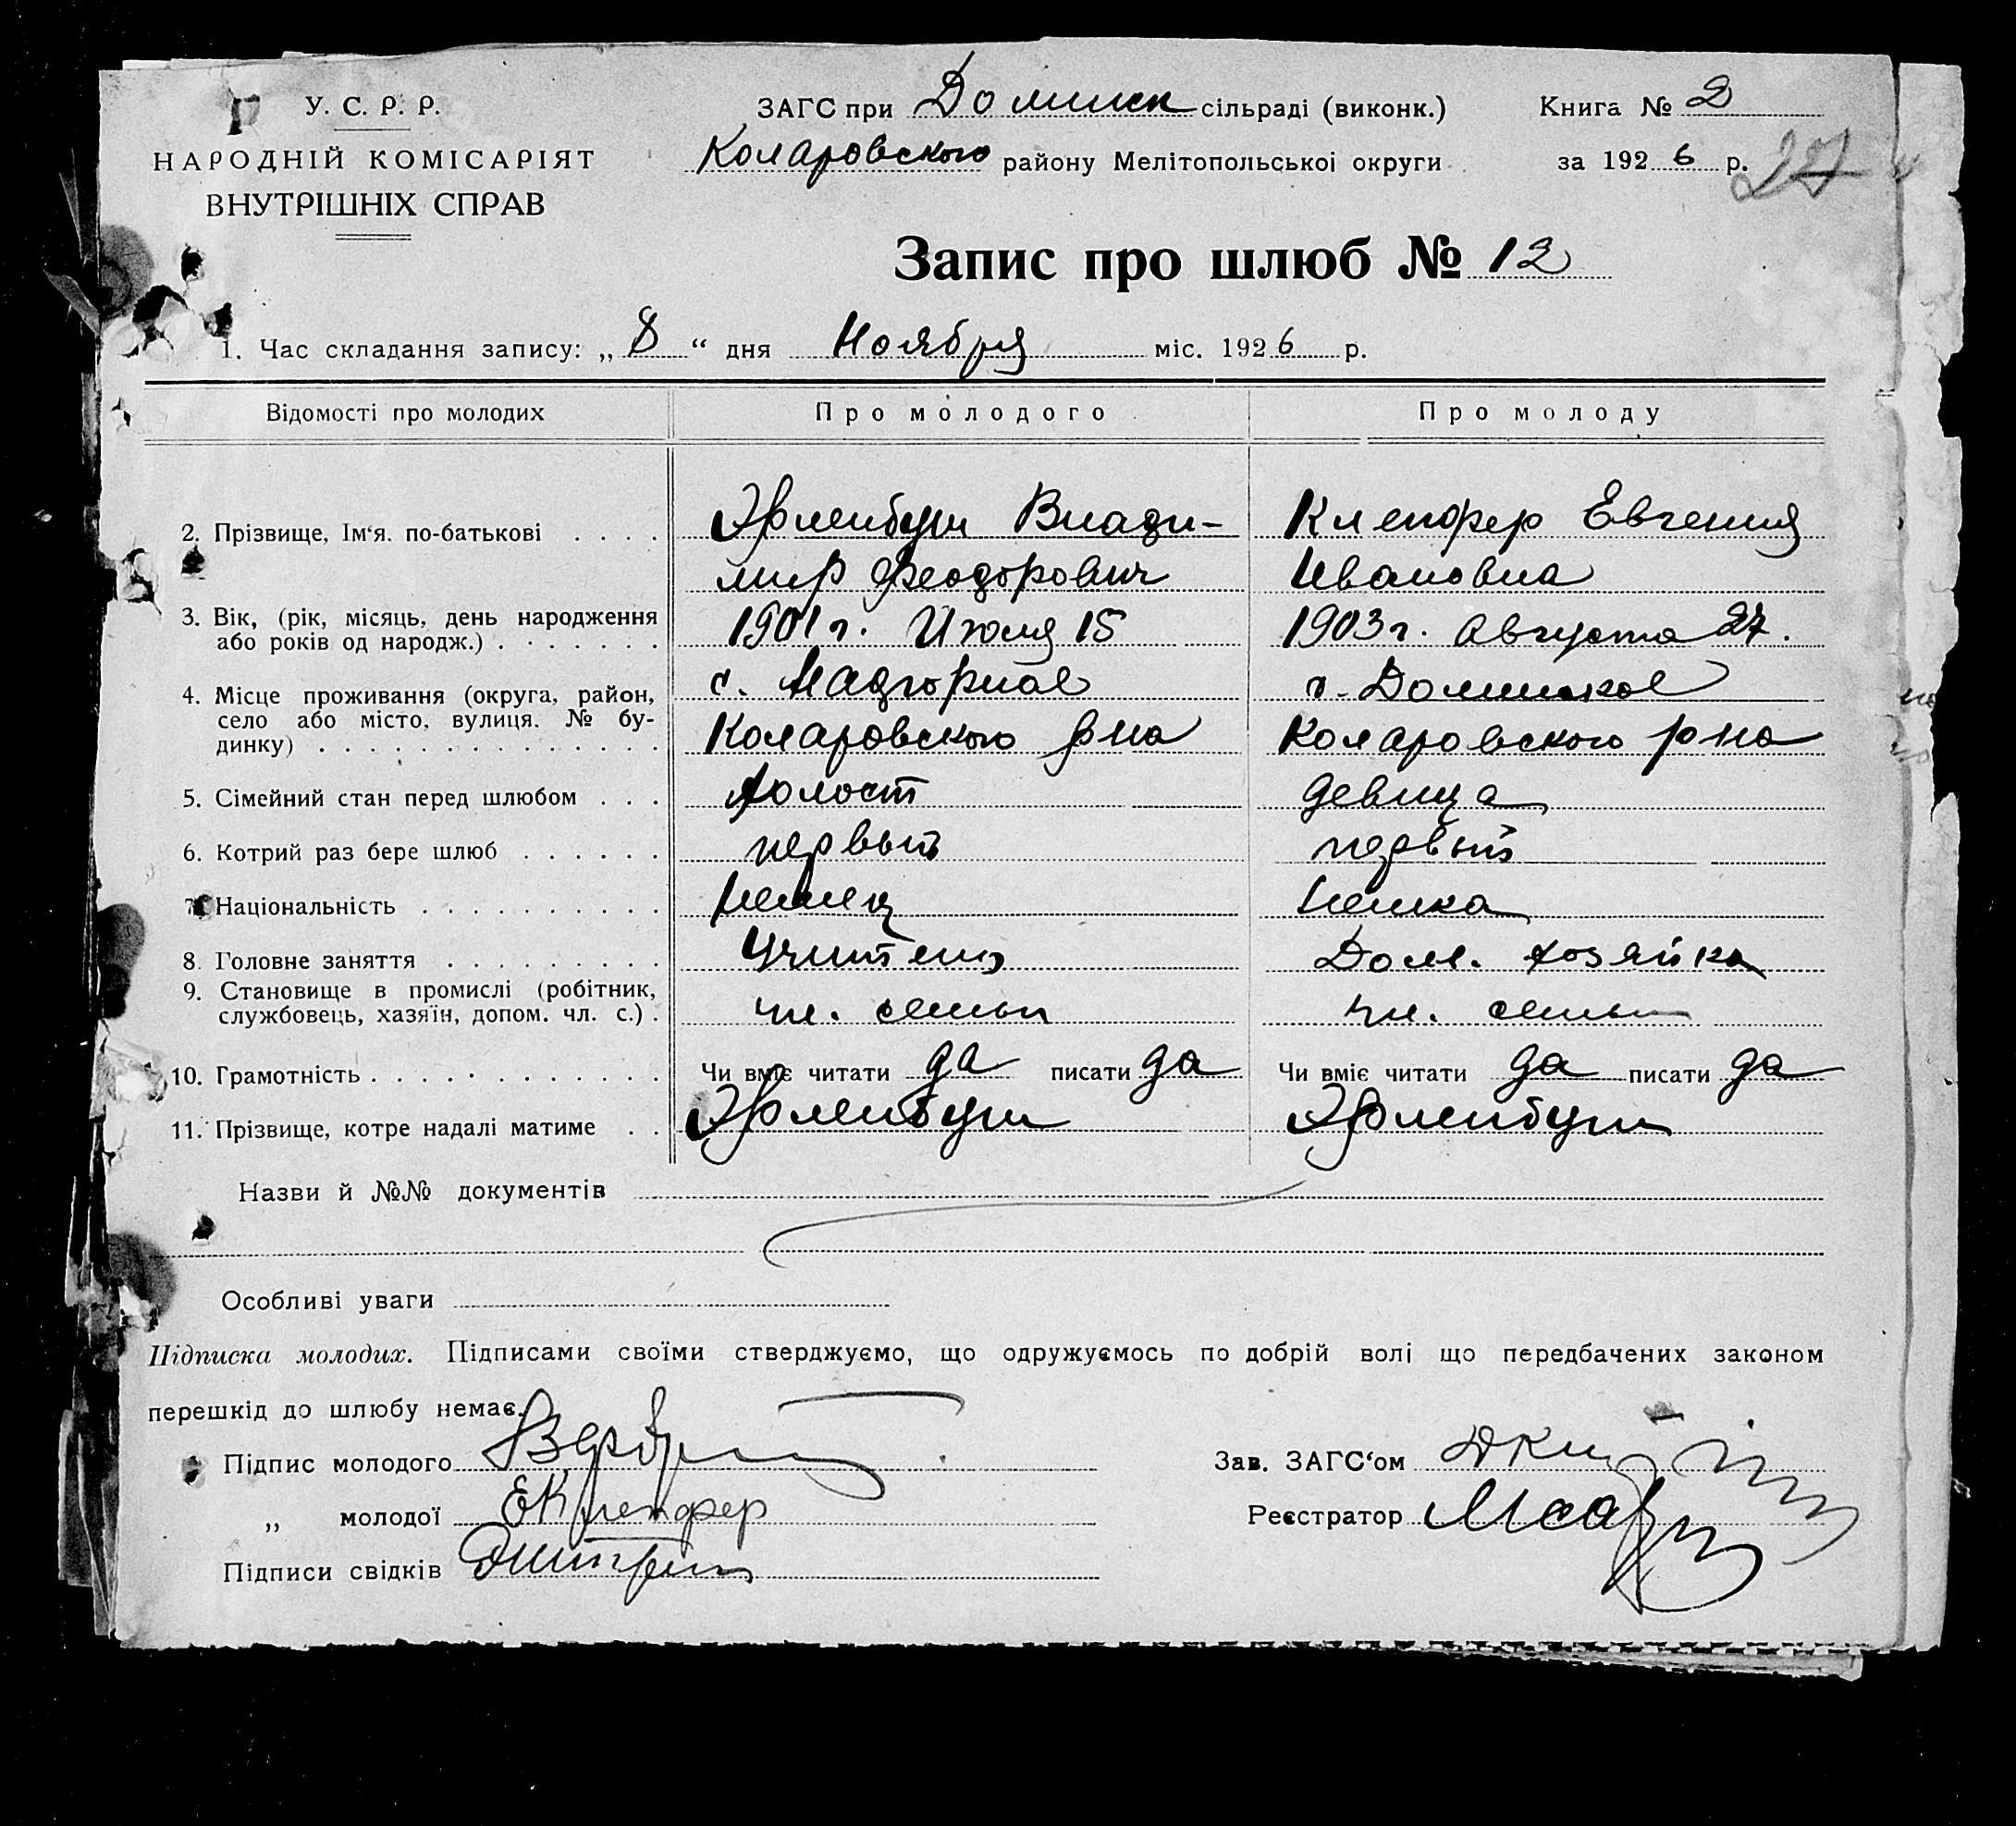 У. С. Р. Р.
НАРОДНІЙ КОМІСАРІЯТ
ВНУТРІШНІХ СПРАВ
ЗАГС при Доминск сільраді (виконк.)
Коларовского району Мелітопольськоі округи
Книга № 2
за 1926 р.
27
Запис про шлюб № 12
1. Час складання запису: „ 8 “ дня Ноября міс. 1926 р.
Відомості про молодих Про молодого Про молоду
2. Прізвище, Ім‘я. по-батькові . . . . Эрленбуш Влади- Клепфер Евгения
мир Феодорович Ивановна
3. Вік, (рік, місяць, день народження 1901 г. Июля 15 1903 г. Августа 27.
або років од народж.) . . . . . . .
4. Місце проживання (округа, район, с. Надгорное с.
село або місто, вулиця. № бу- Коларовского рна Коларовского рна
динку) . . . . . . . . . . . . . . .
5. Сімейний стан перед шлюбом . . . холост девица
6. Котрий раз бере шлюб . . . . . . первый первый
7. Національність . . . . . . . . . . немец немка
8. Головне заняття . . . . . . . . . Учитель Дом. хозяйка
9. Становище в промислі (робітник, чл. семьи чл. семьи
службовець, хазяїн, допом. чл. с.) .
10. Грамотність . . . . . . . . . . . . Чи вміє читати да писати да Чи вміє читати да писати да
11. Прізвище, котре надалі матиме . . Эрленбуш Эрленбуш
Назви й №№ документів
Особливі уваги
Підписка молодих. Підписами своїми стверджуємо, що одружуємось по добрій волі що передбачених законом
перешкід до шлюбу немає.
Підпис молодого
„ молодої ЕКлепфер
Підписи свідків
Зав. ЗАГС‘ом
Реєстратор